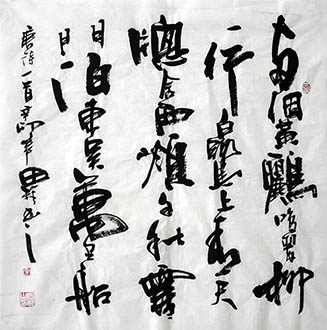 兩個黃鸝鳴翠柳
一行白鷺上青天
窗含西嶺千秋雪
門泊東吳萬里船
唐詩一首辛卯年田書